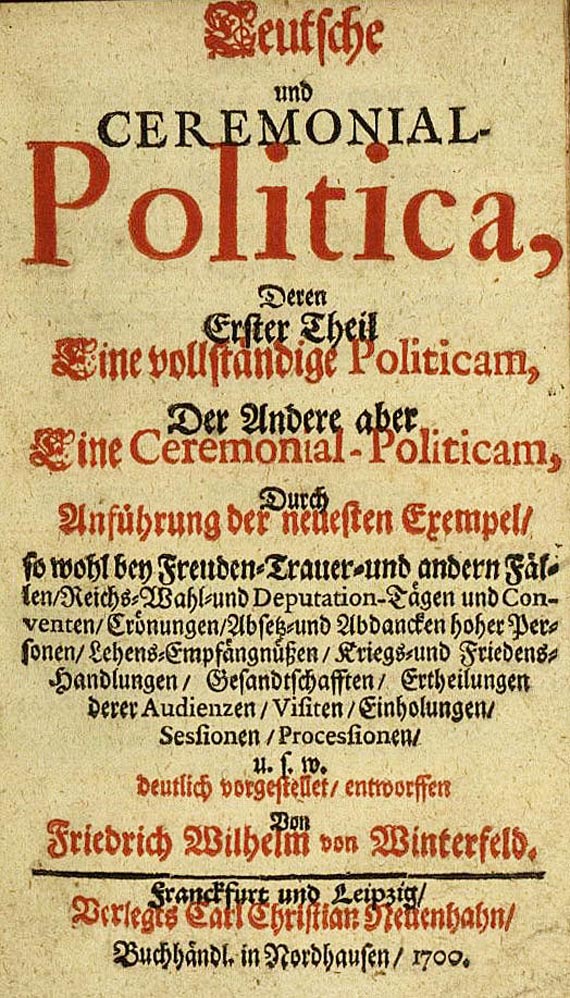 Teutsche
und
CEREMONIAL-
Politica,
Deren
Erster Theil
Eine vollständige Politicam,
Der Andere aber
Eine Ceremonial-Politicam,
Durch
Anführung der neuesten Exempel/
so wohl bey Freuden-Trauer-und andern Fäl-
len/Reichs-Wahl-und Deputation-Tägen und Con-
venten/Crönungen/Absetz-und Abdancken hoher Per-
sonen/Lehens-Empfängnüßen/Kriegs-und Friedens-
Handlungen/ Gesandtschafften/ Ertheilungen
derer Audienzen/Visiten/Einholungen/
Sessionen/Processionen/
u. s. w.
deutlich vorgestellet/ entworffen
Von
Friedrich Wilhelm von Winterfeld.
Franckfurt und Leipzig/
Verlegts Carl Christian Neuenhahn/
Buchhändl. in Nordhausen/ 1700.